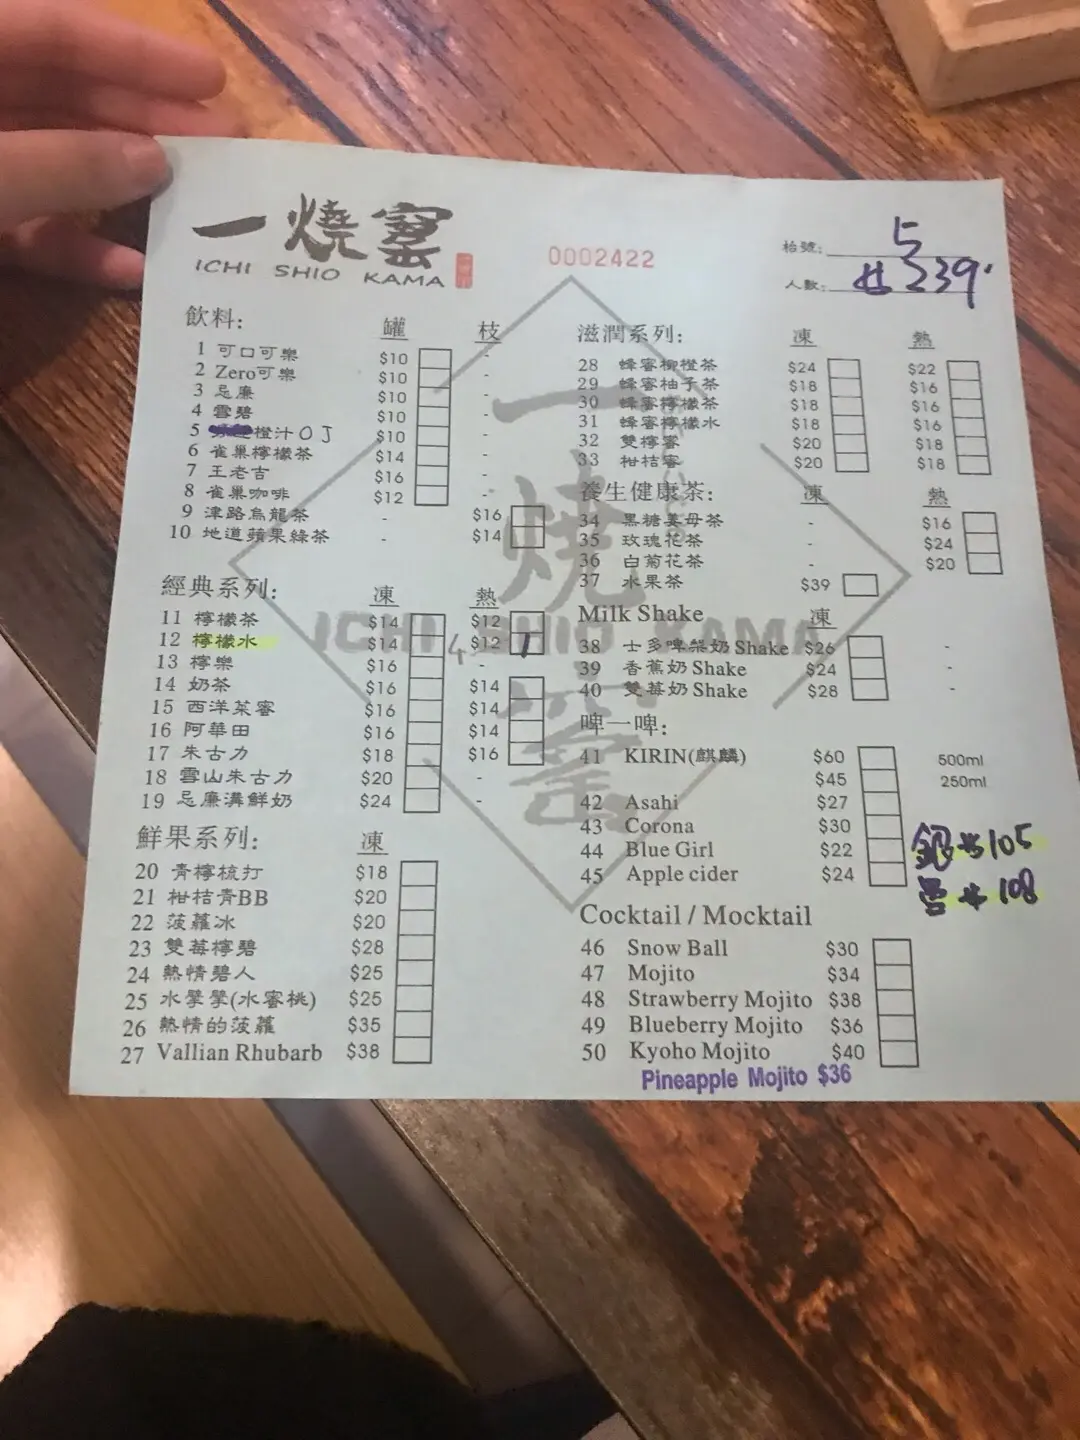 一燒窯
ICHI SHIO KAMA
0002422
枱號: 5
人數: 239
飲料: 罐 枝
1 可口可樂 $10 -
2 Zero可樂 $10 -
3 忌廉 $10 -
4 雪碧 $10 -
5 橙汁OJ $10 -
6 雀巢檸檬茶 $14 -
7 王老吉 $16 -
8 雀巢咖啡 $12 -
9 津路烏龍茶 - $16
10 地道蘋果綠茶 - $14
經典系列: 凍 熱
11 檸檬茶 $14 $12
12 檸檬水 $14 4 $12 1
13 檸樂 $16 -
14 奶茶 $16 $14
15 西洋菜蜜 $16 $14
16 阿華田 $16 $14
17 朱古力 $18 $16
18 雪山朱古力 $20 -
19 忌廉溝鮮奶 $24 -
鮮果系列: 凍
20 青檸梳打 $18
21 柑桔青BB $20
22 菠蘿冰 $20
23 雙莓檸碧 $28
24 熱情碧人 $25
25 水擘擘(水蜜桃) $25
26 熱情的菠蘿 $35
27 Vallian Rhubarb $38
滋潤系列: 凍 熱
28 蜂蜜柳橙茶 $24 $22
29 蜂蜜柚子茶 $18 $16
30 蜂蜜檸檬茶 $18 $16
31 蜂蜜檸檬水 $18 $16
32 雙檸蜜 $20 $18
33 柑桔蜜 $20 $18
養生健康茶: 凍 熱
34 黑糖姜母茶 - $16
35 玫瑰花茶 - $24
36 白菊花茶 - $20
37 水果茶 $39
Milk Shake 凍
38 士多啤梨奶 Shake $26 -
39 香蕉奶 Shake $24 -
40 雙莓奶 Shake $28 -
啤一啤:
41 KIRIN(麒麟) $60 500ml
$45 250ml
42 Asahi $27
43 Corona $30
44 Blue Girl $22
45 Apple cider $24
銀 105
雪 108
Cocktail / Mocktail
46 Snow Ball $30
47 Mojito $34
48 Strawberry Mojito $38
49 Blueberry Mojito $36
50 Kyoho Mojito $40
Pineapple Mojito $36
一燒窯
ICHI SHIO KAMA